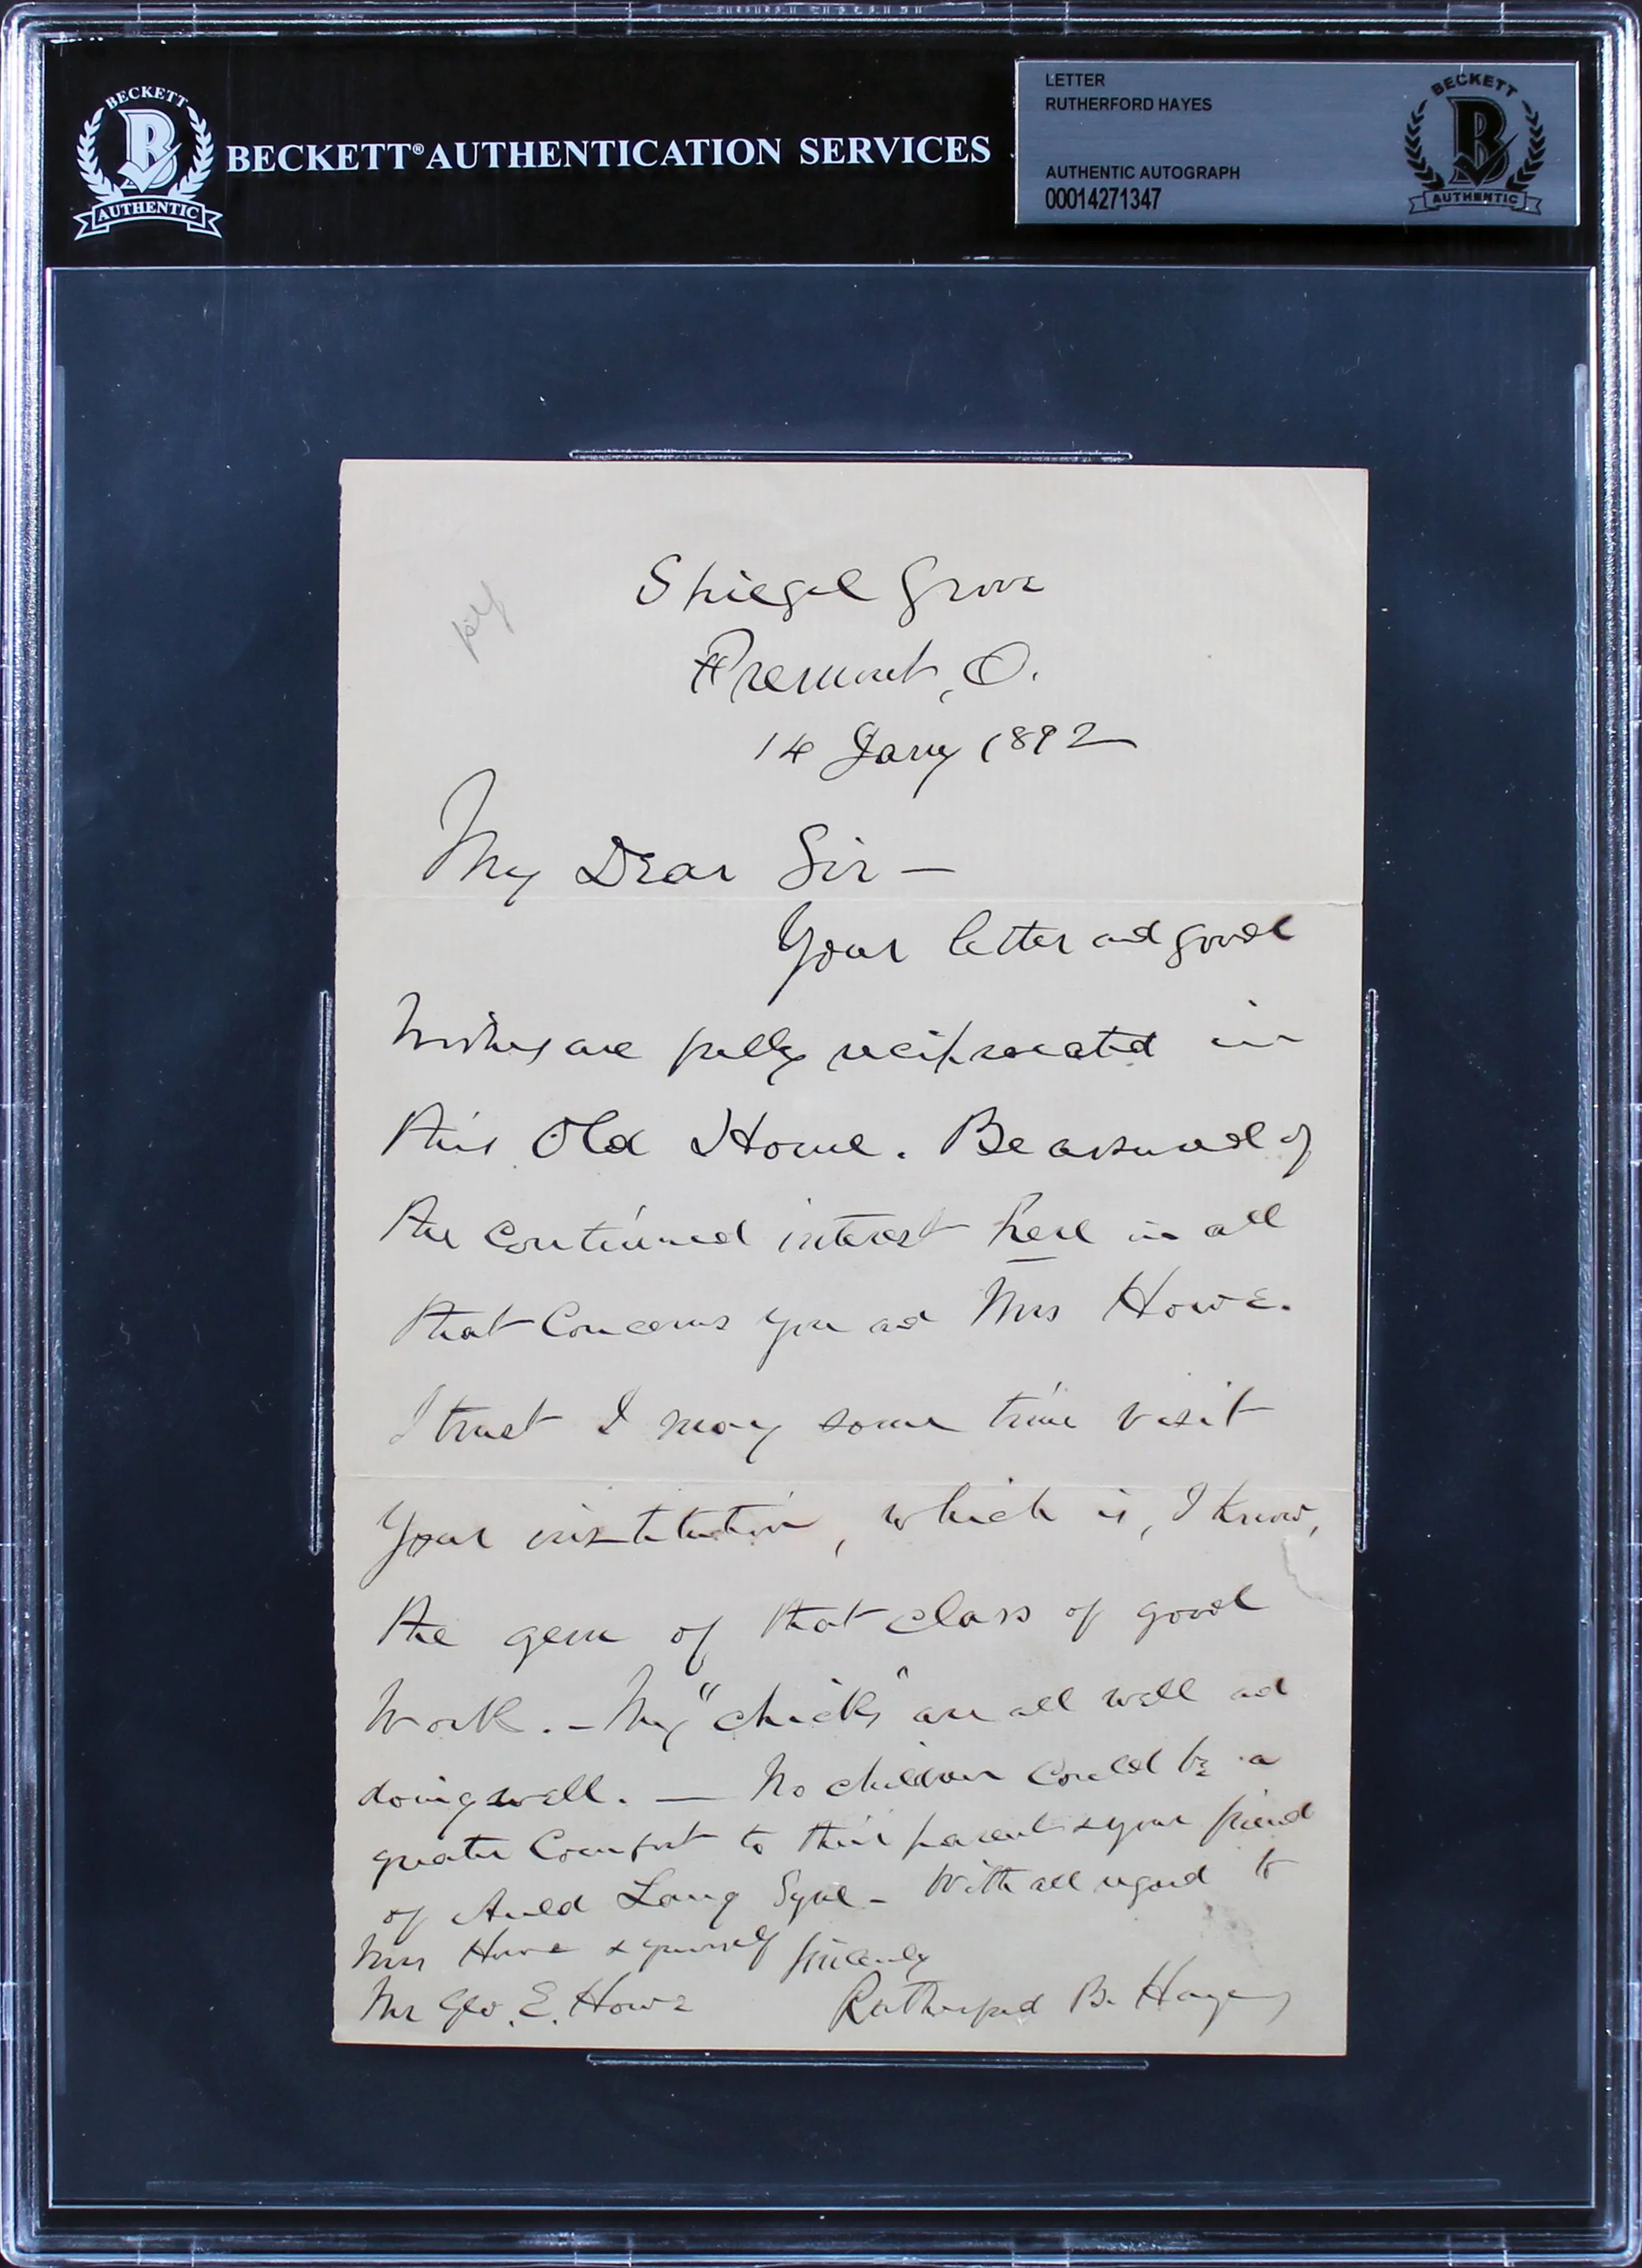 BECKETT
B
AUTHENTIC
BECKETT® AUTHENTICATION SERVICES
LETTER
RUTHERFORD HAYES
AUTHENTIC AUTOGRAPH
00014271347
BECKETT
B
AUTHENTIC
Spiegel Grove
Fremont, O.
14 Jany 1892
My Dear Sir —
Your letter and good
wishes are fully reciprocated in
this Old Home. Be assured of
the continued interest here in all
that concerns you and Mrs Howe.
I trust I may some time visit
your institution, which is, I know,
the gem of that class of good
work. – My "chicks" are all well and
doing well. — No children could be a
greater comfort to their parent & your friend
of Auld Lang Syne – With all regard to
Mrs Howe & yourself Sincerely
Mr Geo. E. Howe Rutherford B. Hayes